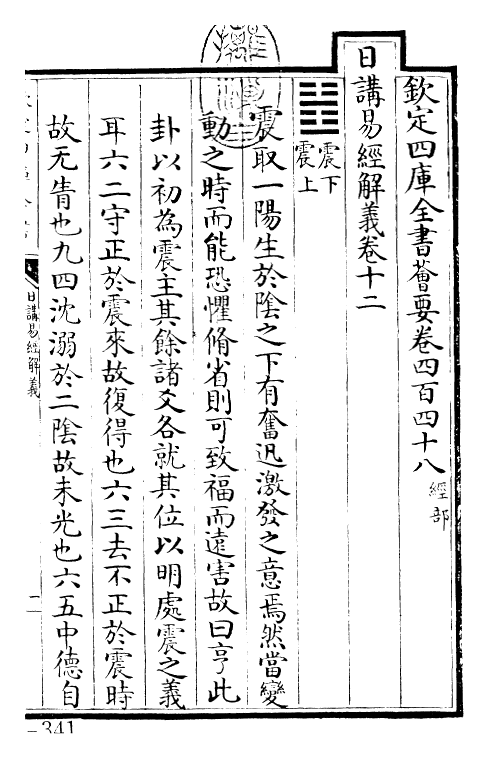 欽定四庫全書薈要卷四百四十八 經部
日講易經解義卷十二
震下
震上
震取一陽生於陰之下有奮迅激發之意焉然當變
動之時而能恐懼脩省則可致福而遠害故曰亨此
卦以初為震主其餘諸爻各就其位以明處震之義
耳六二守正於震來故復得也六三去不正於震時
故无眚也九四沈溺於二陰故未光也六五中德自
日講易經解義
341